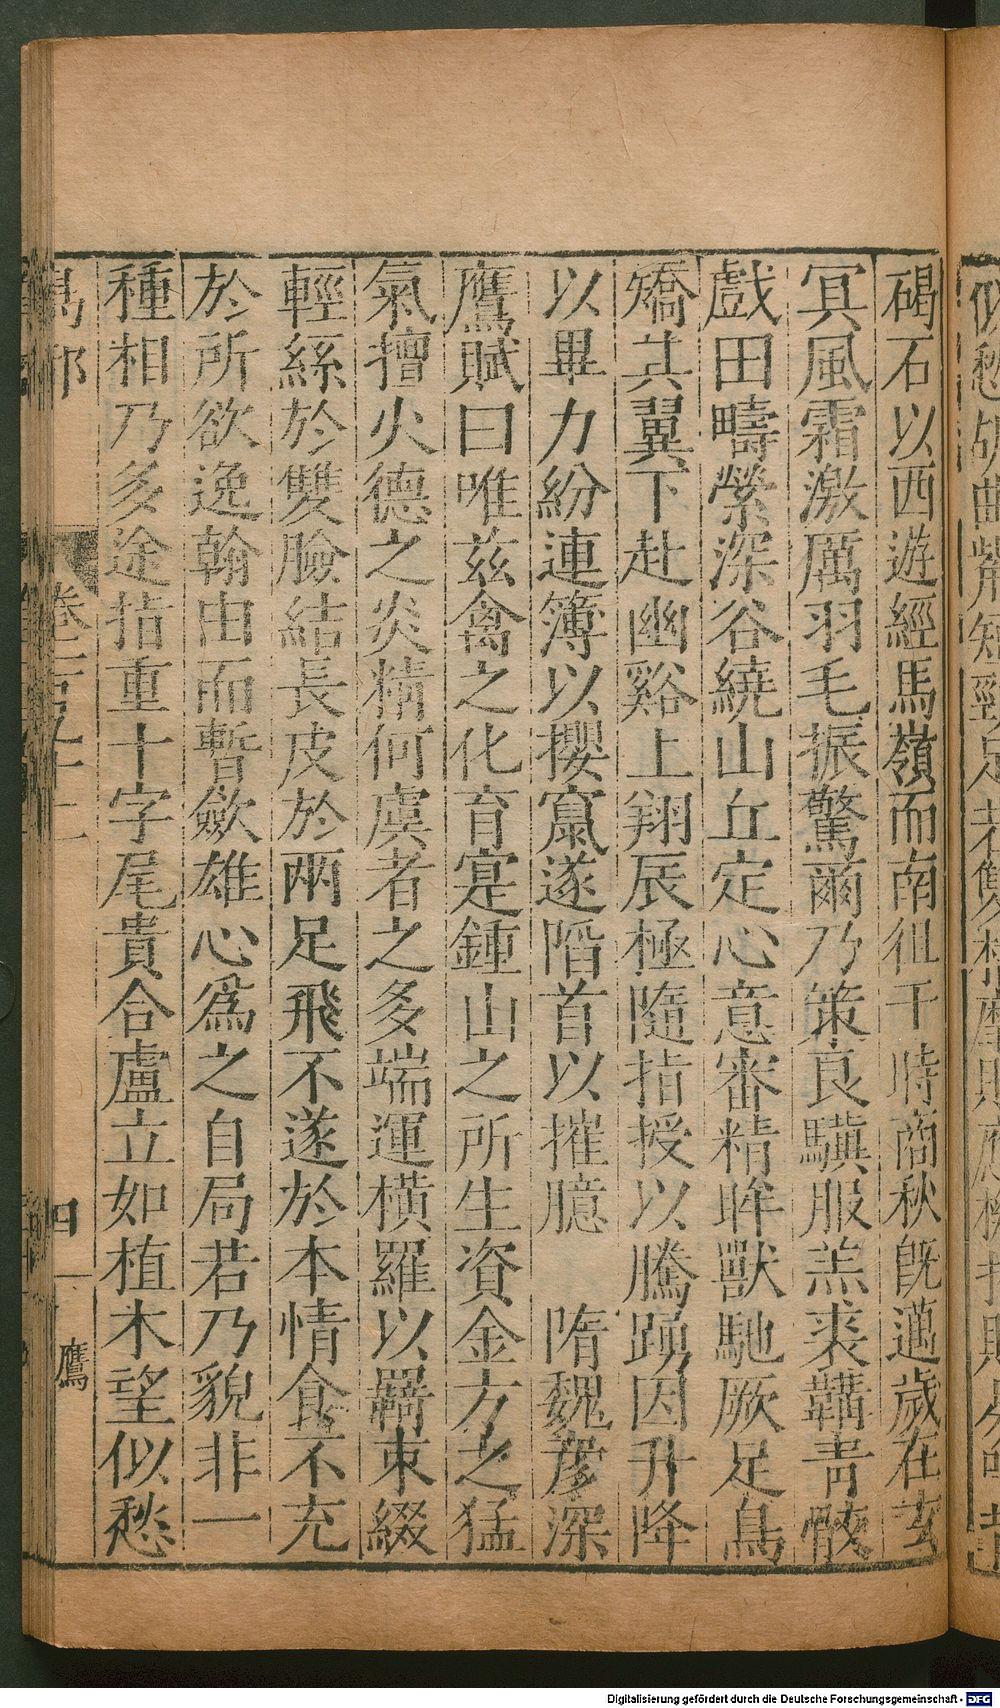 碣石以西遊經馬嶺而南徂于時商秋旣邁歲在玄
冥風霜激厲羽毛振驚爾乃策良驥服羔裘韝青骹
戲田疇縈深谷繞山丘定心意審精眸獸馳厥足鳥
矯其翼下赴幽谿上翔辰極隨指授以騰踴因升降
以畢力紛連簿以攖窠遂陷首以摧臆 隋魏彥深
鷹賦曰唯茲禽之化育寔鍾山之所生資金方之猛
氣擅火德之炎精何虞者之多端運橫羅以羇束綴
輕絲於雙臉結長皮於兩足飛不遂於本情食不充
於所欲逸翰由而暫斂雄心爲之自局若乃貌非一
種相乃多途指重十字尾貴合盧立如植木望似愁
鳥部
四
鷹
Digitalisierung gefördert durch die Deutsche Forschungsgemeinschaft - DFG